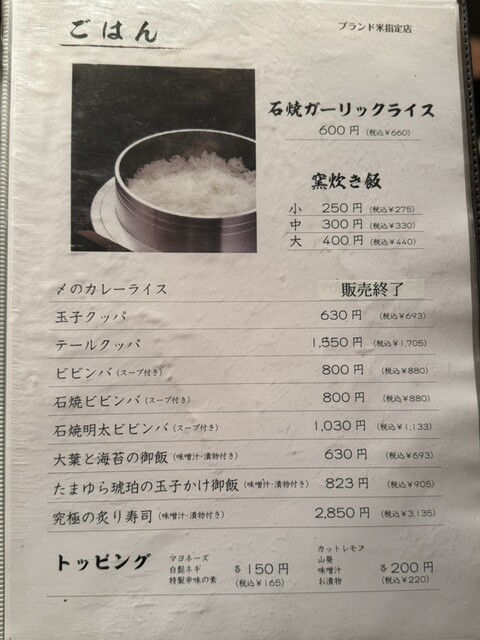 ごはん
ブランド米指定店
石焼ガーリックライス
600円 (税込¥660)
窯炊き飯
小 250円 (税込¥275)
中 300円 (税込¥330)
大 400円 (税込¥440)
〆のカレーライス 販売終了
玉子クッパ 630円 (税込¥693)
テールクッパ 1,550円 (税込¥1,705)
ビビンバ (スープ付き) 800円 (税込¥880)
石焼ビビンバ (スープ付き) 800円 (税込¥880)
石焼明太ビビンバ (スープ付き) 1,030円 (税込¥1,133)
大葉と海苔の御飯 (味噌汁・漬物付き) 630円 (税込¥693)
たまゆら琥珀の玉子かけ御飯 (味噌汁・漬物付き) 823円 (税込¥905)
究極の炙り寿司 (味噌汁・漬物付き) 2,850円 (税込¥3,135)
トッピング
マヨネーズ
白髭ネギ
特製辛味の素
各150円
(税込¥165)
カットレモン
山葵
味噌汁
お漬物
各200円
(税込¥220)